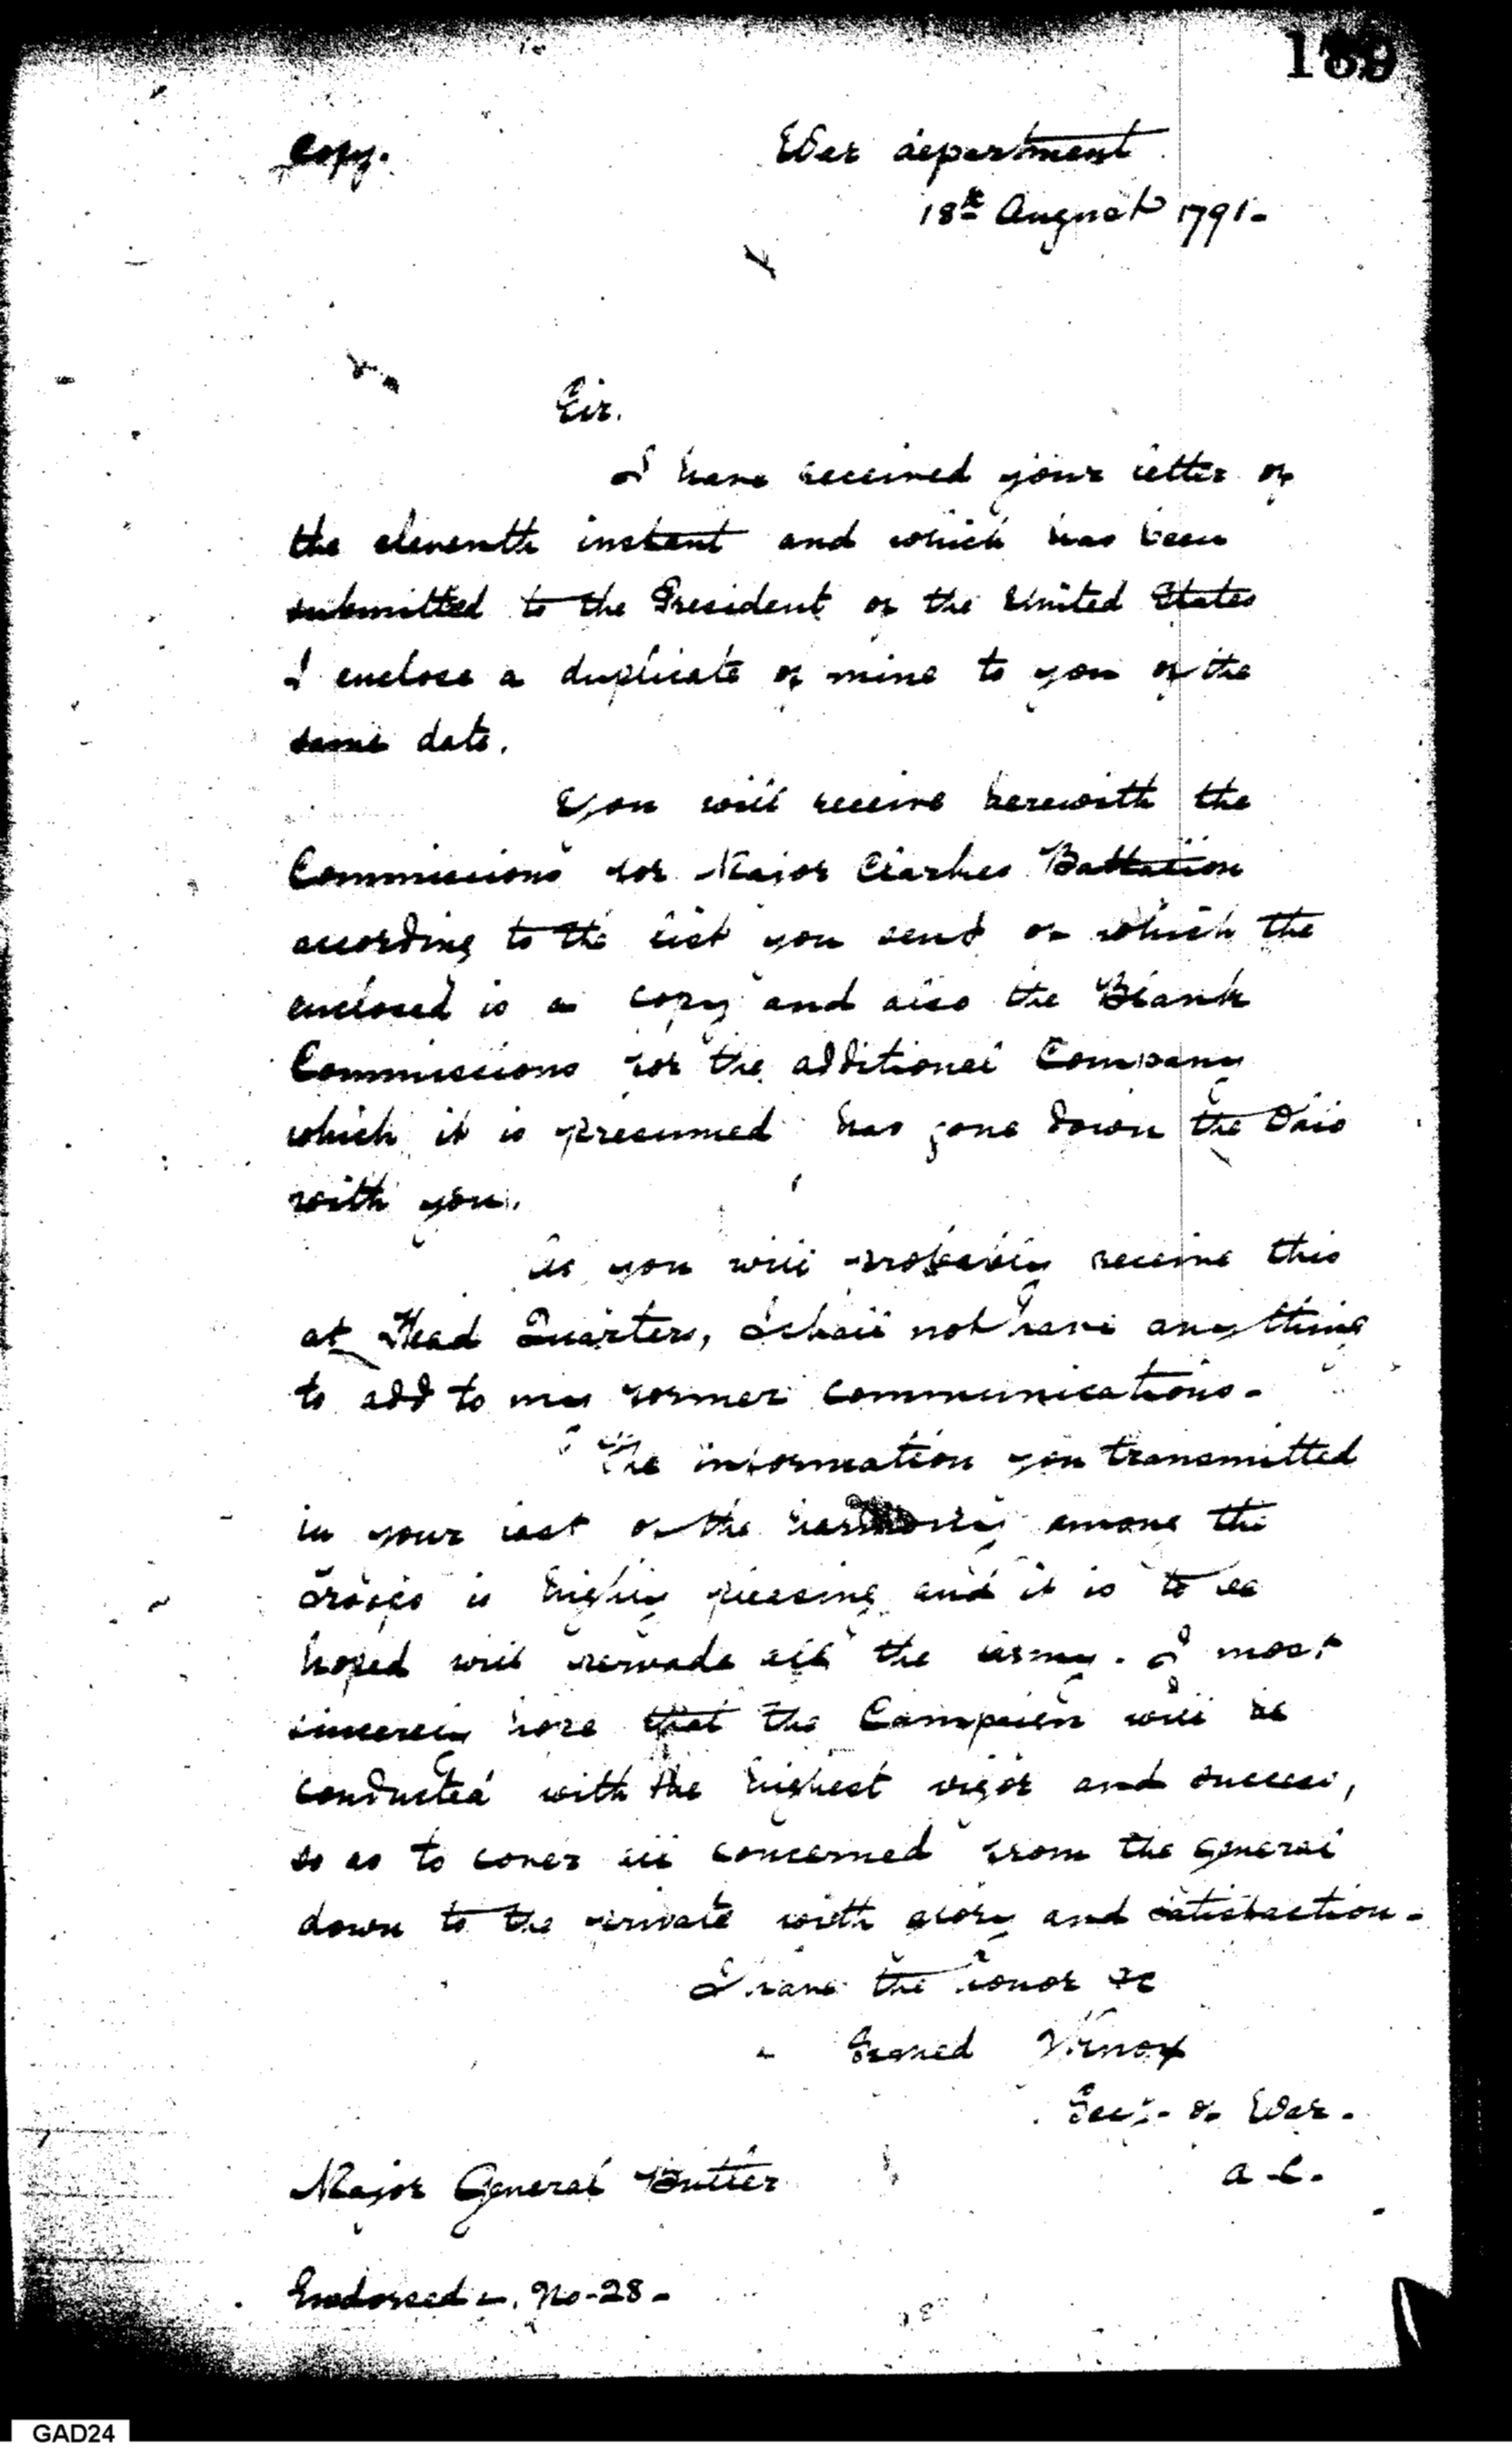 189
Copy.
War department
18th August 1791-
Sir.
I have received your letter of
the eleventh instant and which has been
submitted to the President of the United States
I enclose a duplicate of mine to you of the
same date.
You will receive herewith the
Commissions for Major Clarkes Battalion
according to the list you send of which the
enclosed is a copy and also the Blank
Commissions for the additional Company
which it is presumed has gone down the Ohio
with you.
As you will probably receive this
at Head Quarters, I shall not have any thing
to add to my former communications-
The information you transmitted
in your last of the harmony among the
Troops is highly pleasing and it is to be
hoped will pervade all the army. I most
sincerely hope that the Campaign will be
conducted with the highest vigor and success,
so as to cover all concerned from the general
down to the private with glory and satisfaction-
I have the honor &c
Signed HKnox
Secy- of War.
Major General Butler
Endorsed. No-28-
GAD24